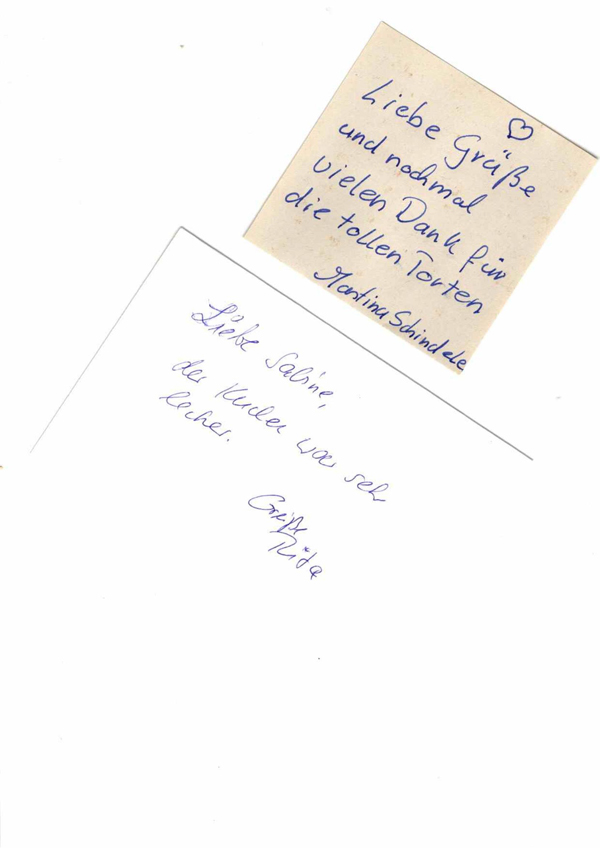 Liebe Grüße
und nochmal
vielen Dank für
die tollen Torten
Martina Schindele
Liebe Sabine,
der Kuchen war sehr
lecker.
Grüße
Rita